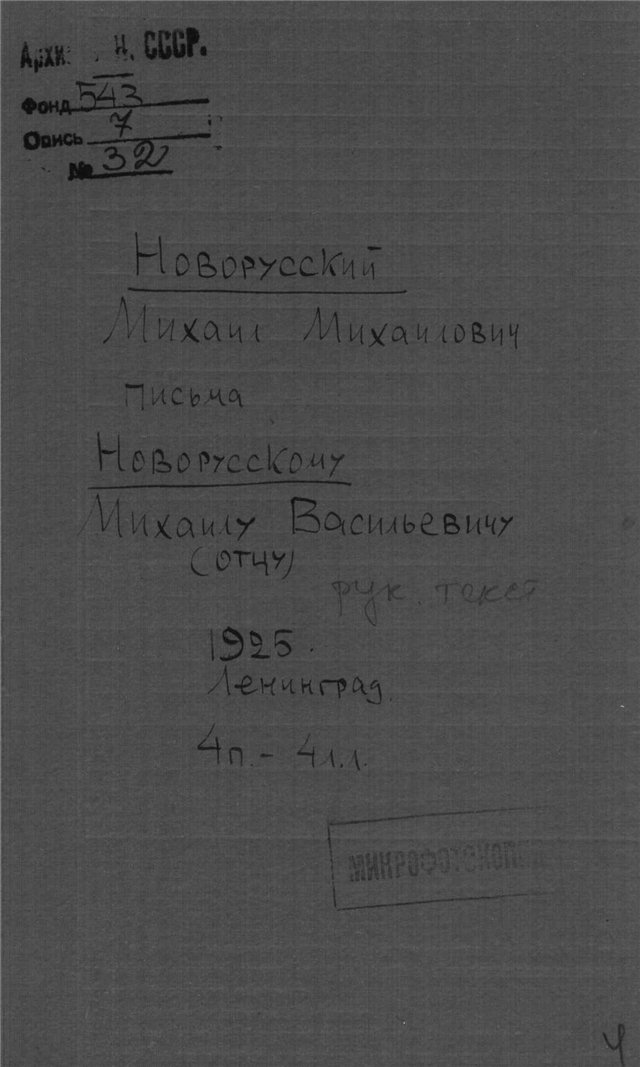 Н. СССР.
Фонд 543
Опись 7
№ 32
Новорусский
Михаил Михаилович
письма
Новорусскому
Михаилу Васильевичу
(отцу)
рук. текст
1925.
Ленинград.
4п. - 4л.л.